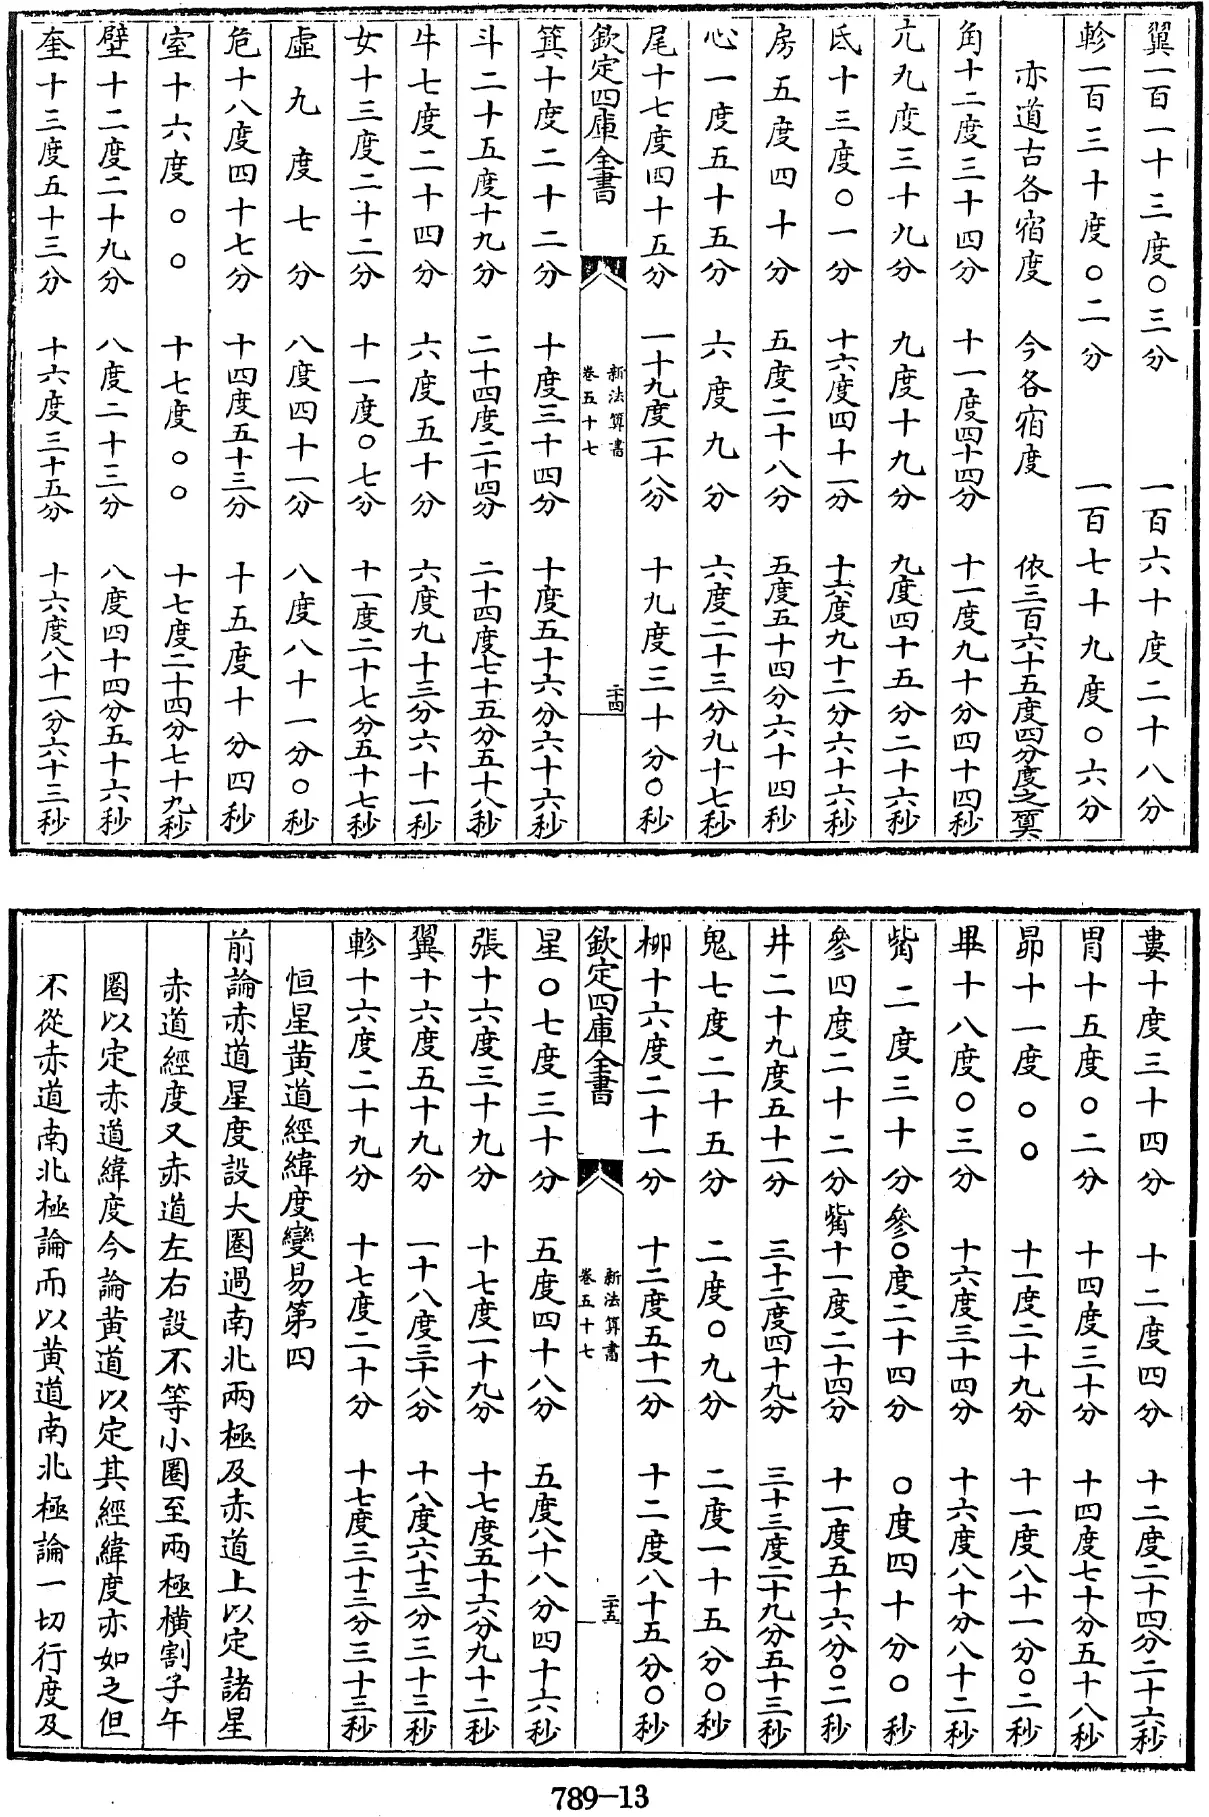 翼一百一十三度〇三分　一百六十度二十八分
軫一百三十度〇二分　一百七十九度〇六分
亦道古各宿度　今各宿度　依三百六十五度四分度之算
角十二度三十四分　十一度四十四分　十一度九十分四十四秒
亢九度三十九分　九度十九分　九度四十五分二十六秒
氐十三度〇一分　十六度四十一分　十六度九十二分六十六秒
房五度四十分　五度二十八分　五度五十四分六十四秒
心一度五十五分　六度九分　六度二十三分九十七秒
尾十七度四十五分　一十九度一十八分　十九度三十分〇秒
欽定四庫全書　新法算書卷五十七　二十四
箕十度二十二分　十度三十四分　十度五十六分六十六秒
斗二十五度十九分　二十四度二十四分　二十四度七十五分五十八秒
牛七度二十四分　六度五十分　六度九十三分六十一秒
女十三度二十二分　十一度〇七分　十一度二十七分五十七秒
虛九度七分　八度四十一分　八度八十一分〇秒
危十八度四十七分　十四度五十三分　十五度十分四秒
室十六度〇〇　十七度〇〇　十七度二十四分七十九秒
壁十二度二十九分　八度二十三分　八度四十四分五十六秒
奎十三度五十三分　十六度三十五分　十六度八十一分六十三秒
婁十度三十四分　十二度四分　十二度二十四分二十六秒
胃十五度〇二分　十四度三十分　十四度七十分五十八秒
昴十一度〇〇　十一度二十九分　十一度八十一分〇二秒
畢十八度〇三分　十六度三十四分　十六度八十分八十二秒
觜二度三十分參〇度二十四分　〇度四十分〇秒
參四度二十二分觜十一度二十四分　十一度五十六分〇二秒
井二十九度五十一分　三十二度四十九分　三十三度二十九分五十三秒
鬼七度二十五分　二度〇九分　二度一十五分〇秒
柳十六度二十一分　十二度五十一分　十二度八十五分〇秒
欽定四庫全書　新法算書卷五十七　二十五
星〇七度三十分　五度四十八分　五度八十八分四十六秒
張十六度三十九分　十七度一十九分　十七度五十六分九十二秒
翼十六度五十九分　一十八度三十八分　十八度六十三分三十三秒
軫十六度二十九分　十七度二十分　十七度三十三分三十三秒
恒星黄道經緯度變易第四
前論赤道星度設大圈過南北兩極及赤道上以定諸星
赤道經度又赤道左右設不等小圈至兩極橫割子午
圈以定赤道緯度今論黄道以定其經緯度亦如之但
不從赤道南北極論而以黄道南北極論一切行度及
789-13